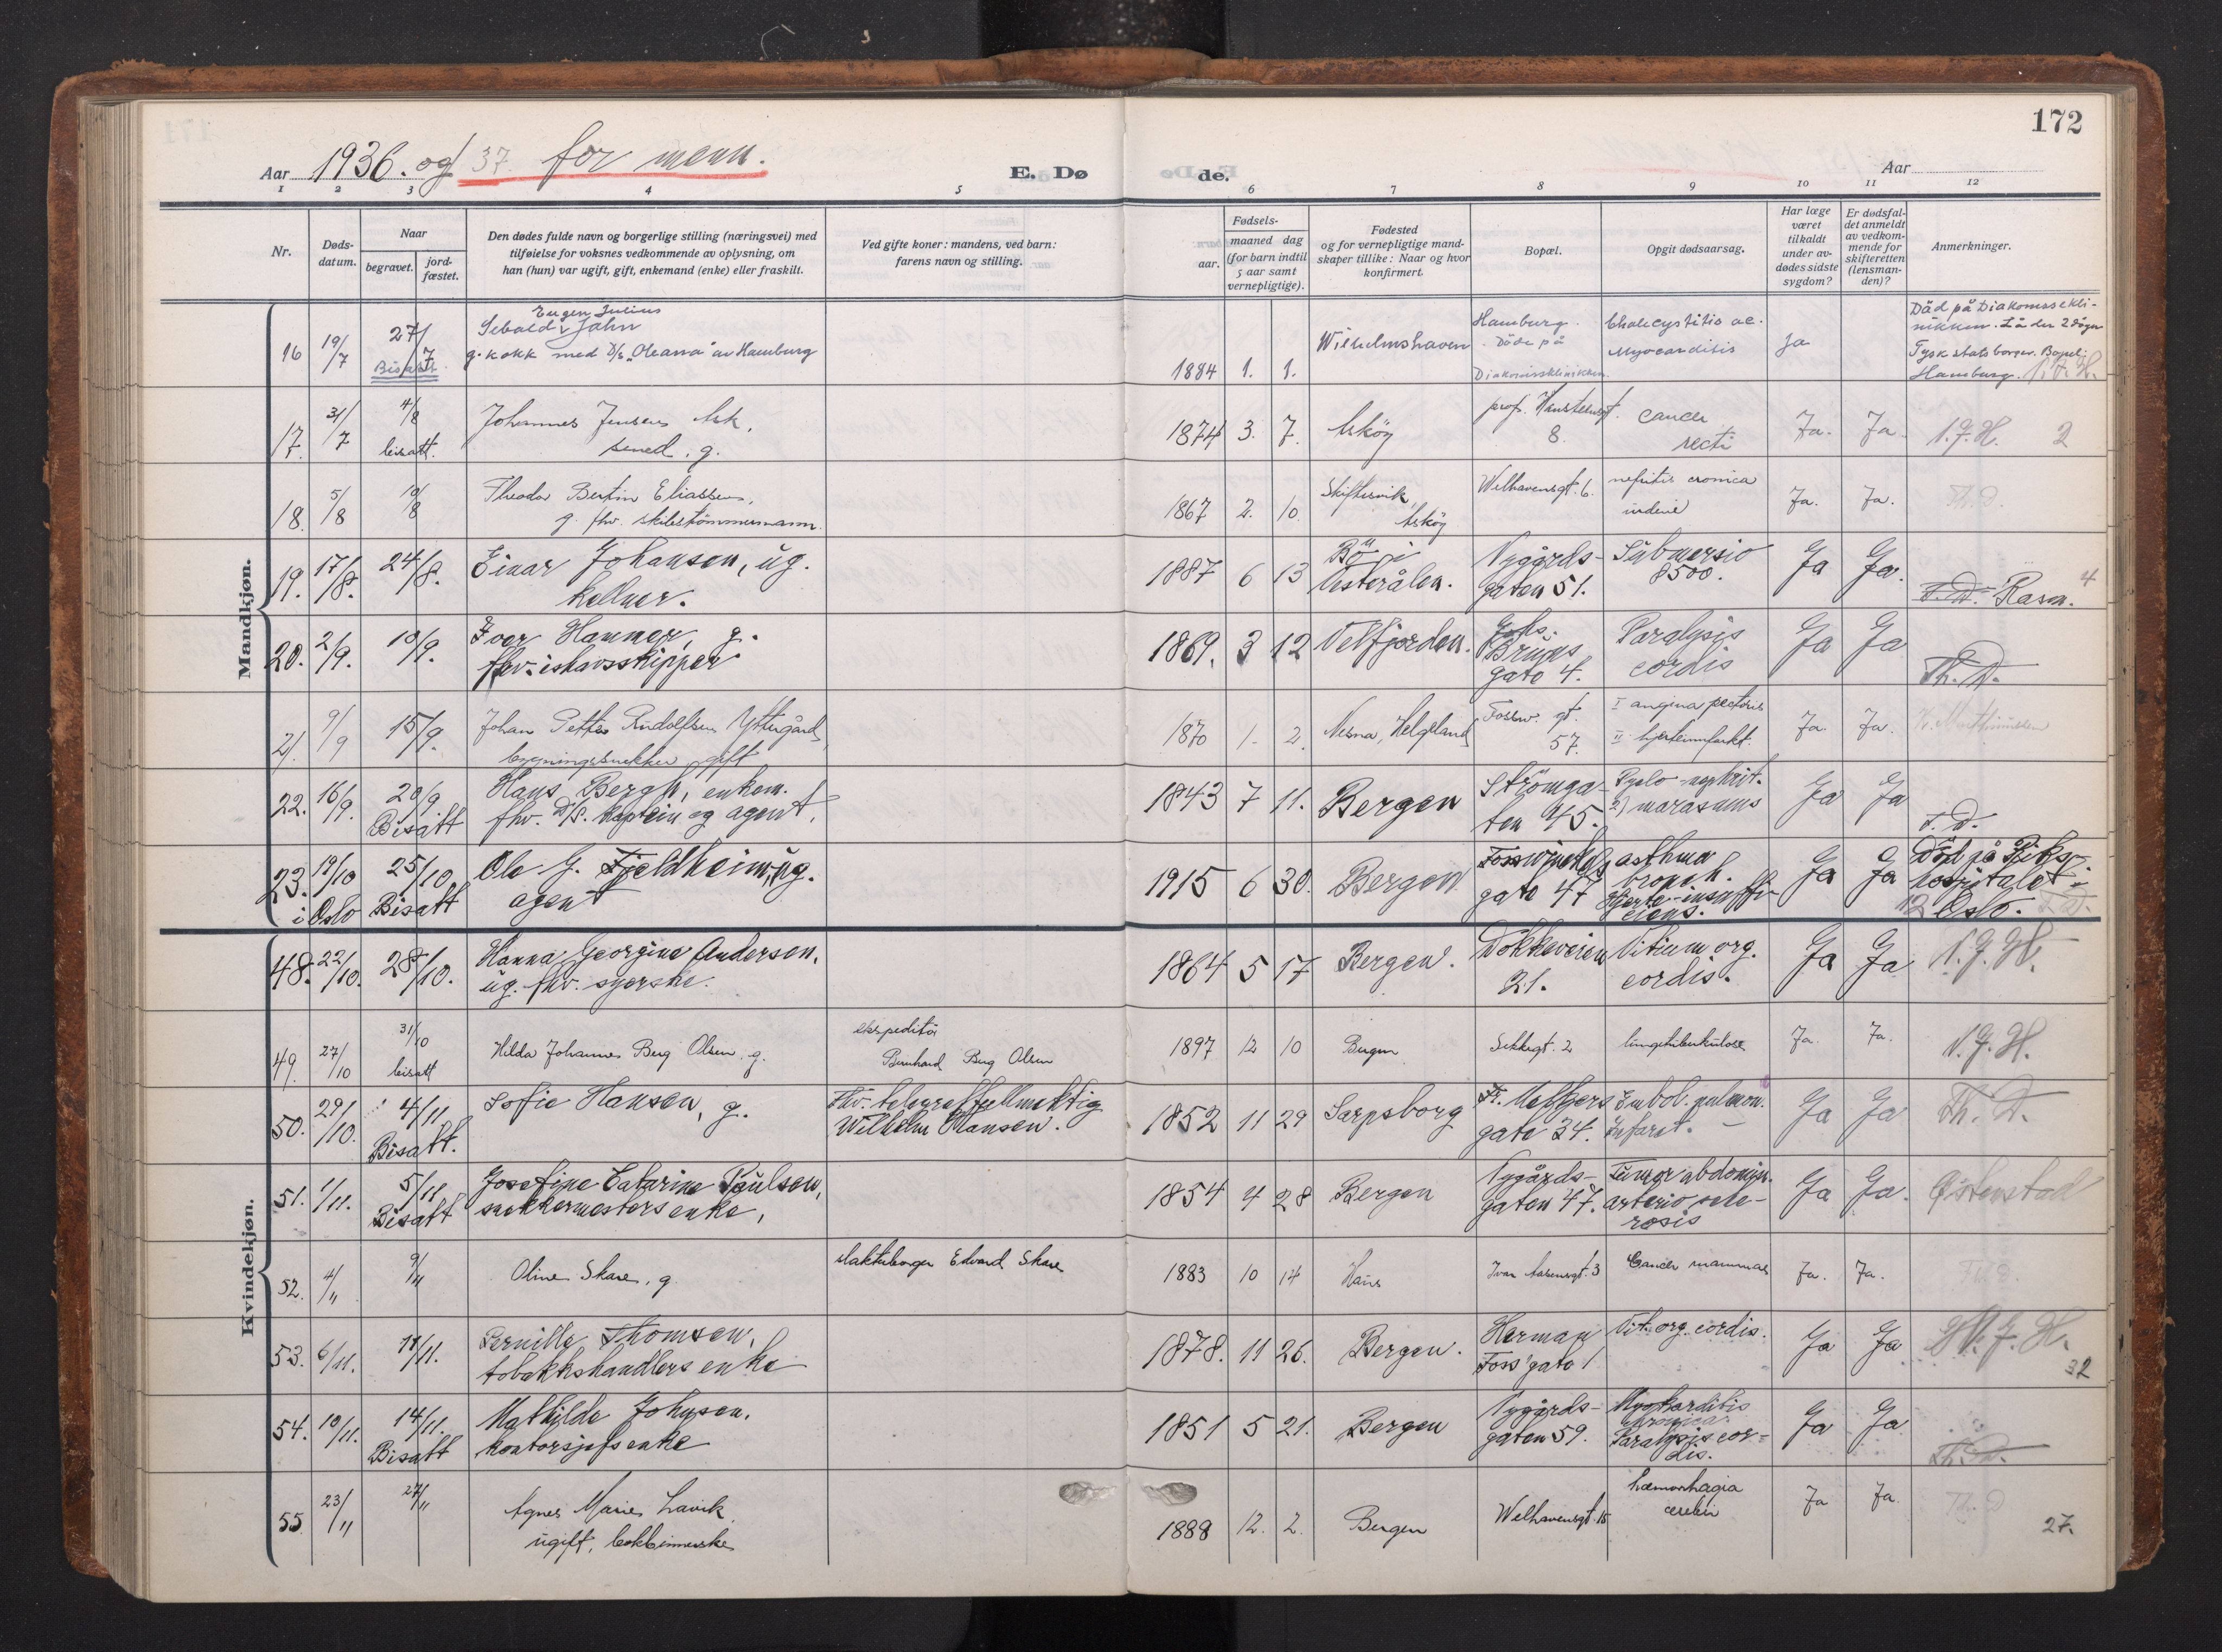 172
Aar 1936. og 37. for menn.
E. Dø de.
Aar
1 2 3 4 5 6 7 8 9 10 11 12
Nr.
Døds-
datum.
Naar
begravet.
jord-
fæstet.
Den dødes fulde navn og borgerlige stilling (næringsvei) med
tilføielse for voksnes vedkommende av oplysning, om
han (hun) var ugift, gift, enkemand (enke) eller fraskilt.
Ved gifte koner: mandens, ved barn:
farens navn og stilling.
Fødsels-
aar.
maaned dag
(for barn indtil
5 aar samt
vernepligtige).
Fødested
og for vernepligtige mand-
skaper tillike: Naar og hvor
konfirmert.
Bopæl.
Opgit dødsaarsag.
Har læge
været
tilkaldt
under av-
dødes sidste
sygdom?
Er dødsfal-
det anmeldt
av vedkom-
mende for
skifteretten
(lensman-
den)?
Anmerkninger.
Mandkjøn.
16 19/7 27/7 Bisatt.
Eugen Julius
Sebald Jahn
g. kokk med D/s "Oleana" av Hamburg
1884 1. 1. Wilhelmshaven
Hamburg.
Døde på
Diakonissklinikken.
Cholecystitis ac.
Myocarditis
Ja
Død på Diakonissekli-
nikken. Lå der 2 døgn
Tysk statsborger. Bopel:
Hamburg. N.J.H.
17. 31/7 4/8 bisatt.
Johannes Jensen Ask,
g.
1874 3. 7. Askøy
prof. Hansteensgt.
8.
cancer
recti
Ja. Ja. N.J.H. 2
18. 5/8 10/8
Theodor Bertin Eliassen,
g. fhv. skibstømmermann.
1867 2. 10.
Skiftesvik,
Askøy
Welhavensgt. 6.
nefritis cronica
Ja. Ja. Th. D.
19. 17/8. 24/8.
Einar Johansen, ug.
kellner.
1887 6 13
Bø i
Vesterålen.
Nygårds-
gaten 51.
Submersio
8500.
Ja Ja. Rasm. 4
20. 2/9. 10/9.
Iver Hammer, g.
fhv. ishavsskipper
1869. 3 12 Velfjorden.
Johs.
Bruns
gate 4.
Paralysis
cordis
Ja Ja Th. D.
21. 9/9 15/9.
Johan Petter Rudolfsen Yttergård,
bygningssnekker gift
1870 1. 2. Nesna, Helgeland
Fossw. gt.
57.
I angina pectoris
II hjerteinfarkt.
Ja. Ja.
22. 16/9. 20/9 Bisatt
Hans Bergh, enkem.
fhv. D/S. kaptein og agent.
1843 7 11. Bergen
Strømga-
ten 45.
Pyelo-nephrit.
2) marasmus
Ja Ja T. D.
23. 19/10 i Oslo 25/10. Bisatt
Ole G. Fjeldheim, ug.
agent
1915 6 30. Bergen
Fosswinckels
gate 47
asthma
bronch.
Hjerte-insuffi-
ciens.
Ja Ja
Død på Riks-
hospitalet i
12 Oslo. T.D.
Kvindekjøn.
48. 22/10. 28/10.
Hanna Georgine Andersen,
ug. fhv. syerske.
1864 5 17 Bergen.
Dokkeveien
21.
Vitium org.
cordis.
Ja Ja N.J.H.
49. 27/10 31/10 bisatt
Hilda Johannes Berg Olsen, g.
ekspeditør
Bernhard Berg Olsen
1897 12 10 Bergen
Sekkegt. 2
lungetuberkulose
Ja. Ja. N.J.H.
50. 29/10. 4/11. Bisatt.
Sofie Hansen, g.
Fhv. telegraffullmektig
Wilhelm Hansen.
1852 11 29 Sarpsborg
Fr. Meltzers
gate 34.
Embol. pulmon.
Infarct.
Ja Ja Th. D.
51. 1/11. 5/11 Bisatt
Josefine Catarina Paulsen,
snekkermesters enke,
1854 4 28 Bergen
Nygårds-
gaten 47.
Tumor abdomin.
arterio scle-
rosis
Ja Ja. Østenstad
52. 4/11 9/11
Oline Skare, g.
slakteborger Edvard Skare
1883 10 14 Haus
Ivar Aasensgt. 3
Cancer mammae
Ja. Ja.
53. 6/11. 11/11.
Pernille Thomsen,
tobakkshandlers enke
1878. 11 26. Bergen.
Herman
Foss' gate 1
Vit. org. cordis.
Ja Ja N.J.H.
32
54. 10/11. 14/11. Bisatt
Mathilde Johnsen,
kontorsjefs enke
1851 5 21. Bergen
Nygårds-
gaten 59.
Myokarditis
chronica.
Paralysis cor-
dis.
Ja Ja Th. D.
55. 23/11 27/11
Agnes Marie Lavik,
ugift, bokbinnerske
1888 12. 2. Bergen
Welhavensgt. 15
hæmorrhagia
cerebri
Ja Ja. Th. D
27.